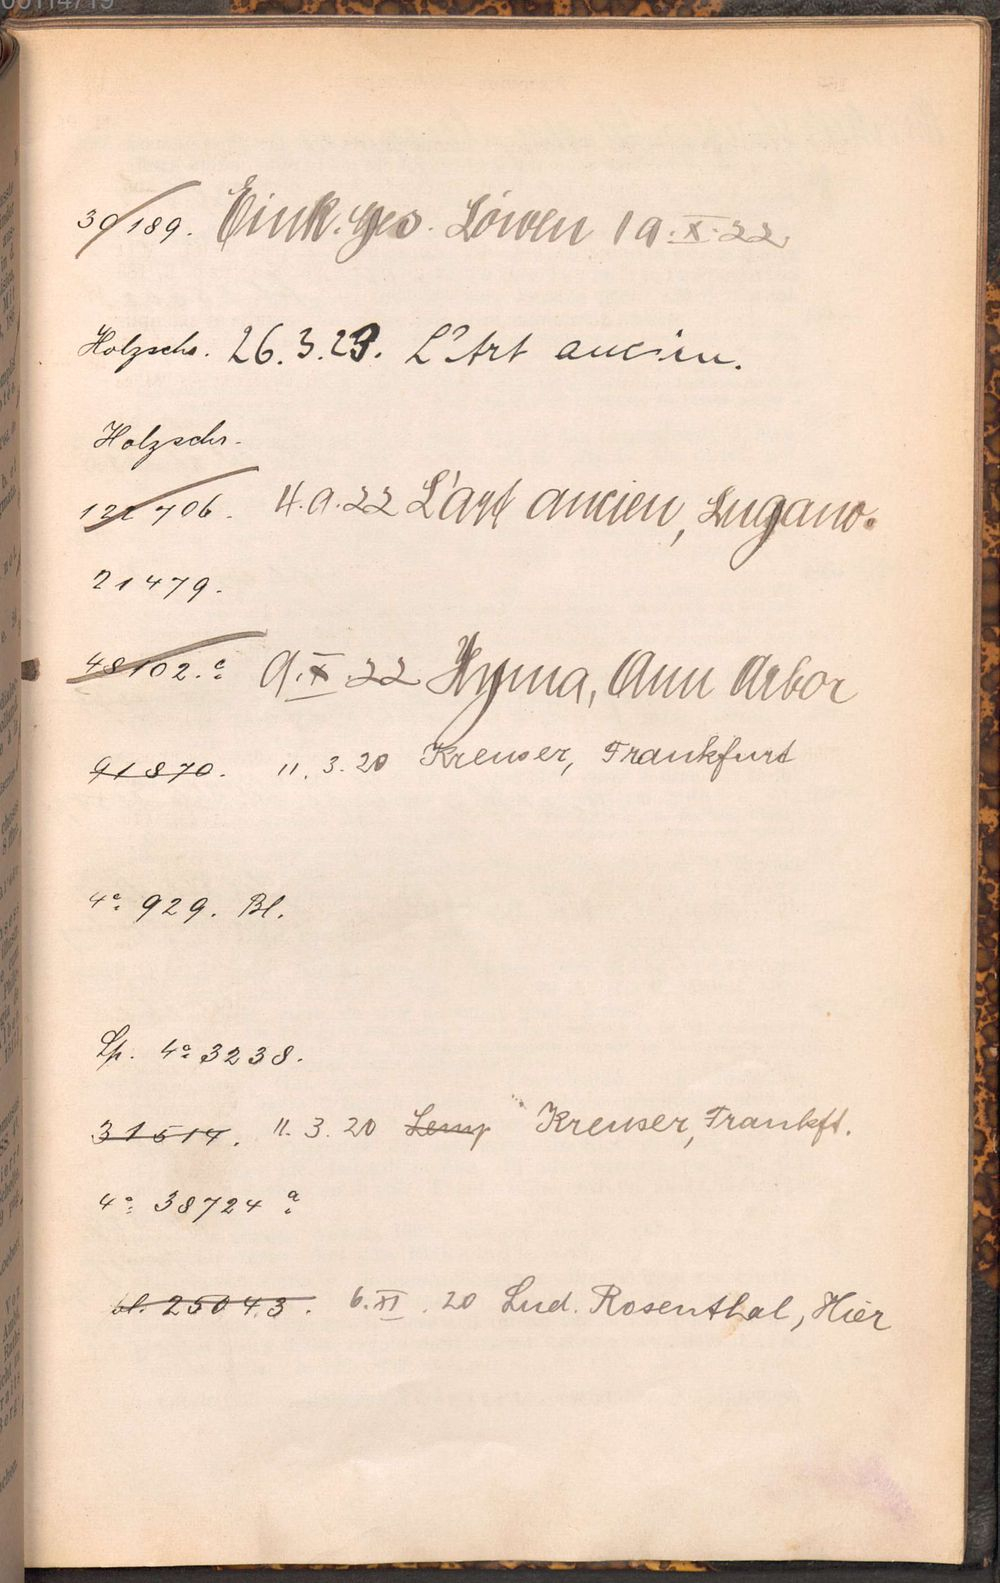 39/189. Eink. Ges. Löwen 19.X.22
Holzschr. 26.3.23. L'Art ancien.
Holzschr.
706. 4.9.22 L'art ancien, Lugano.
21479.
48102.c 9.X.22 Hyma, Ann Arbor
91870. 11.3.20 Kreuser, Frankfurt
4o 929. Bl.
Lp. 4o 3238.
31514. 11.3.20 Kreuser, Frankft.
4o 38724 a
bl. 25043. 6.XI.20 Lud. Rosenthal, Hier